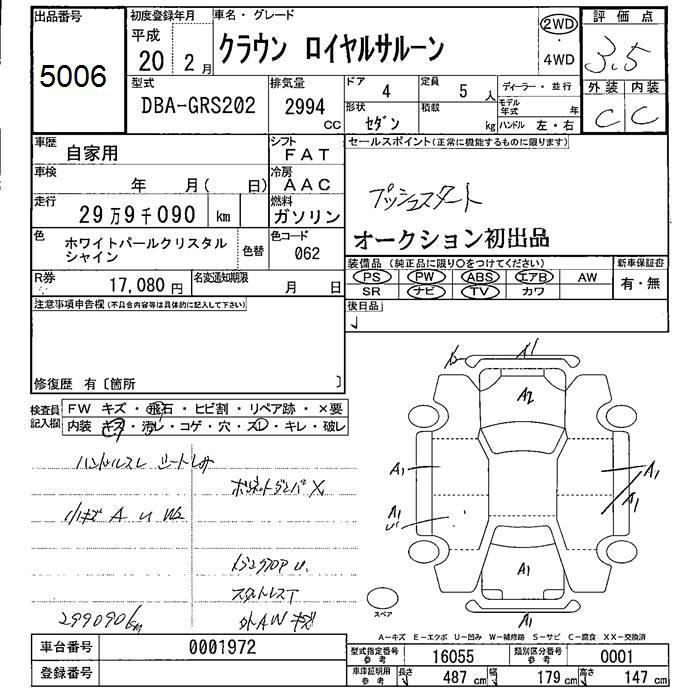 出品番号 初度登録年月 車名・グレード 評価点
5006 平成 20 2月 クラウン ロイヤルサルーン 2WD 4WD 3.5
型式 排気量 ドア 定員 ディーラー・並行 外装 内装
DBA-GRS202 2994 CC 4 5人 モデル年式 年 C C
形状 積載 ハンドル 左・右
セダン kg
車歴 自家用 シフト FAT セールスポイント(正常に機能するものに限ります)
車検 年 月( 日) 冷房 AAC プッシュスタート
走行 29万9千090 km 燃料 ガソリン オークション初出品
色 ホワイトパールクリスタルシャイン 色替 色コード 062
装備品 (純正品に限り〇をつけてください) 新車保証書
PS PW ABS エアB AW 有・無
SR ナビ TV カワ
R券 17,080円 名変通知期限 月 日
注意事項申告欄(不具合内容等は具体的に記入して下さい) 後日品
修復歴 有〔箇所 〕
検査員記入欄 FW キズ・飛石・ヒビ割・リペア跡・×要
内装 キズ・汚レ・コゲ・穴・スレ・キレ・破レ
ハンドルスレ シートレサ
ボンネットダンパX
小キズ A U W2
スタットレスT
外AWキズ
299090km
A1
A2
A1 A1
A1 A1
A1
スペア
A1
A-キズ E-エクボ U-凹み W-補修跡 S-サビ C-腐食 XX-交換済
車台番号 0001972 型式指定番号 参考 16055 類別区分番号 参考 0001
登録番号 車庫証明用 参考 長さ 487cm 幅 179cm 高さ 147cm